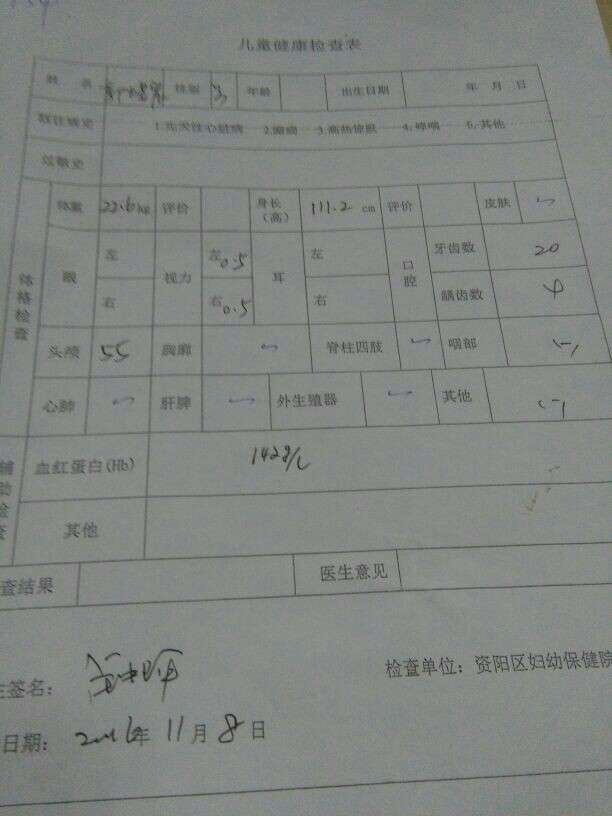 儿童健康检查表
姓 名 性别 年龄 出生日期 年 月 日
既往病史 1.先天性心脏病 2.癫痫 3.高热惊厥 4.哮喘 5.其他
过敏史
体格检查
体重 22.6kg 评价 身长(高) 111.2 cm 评价 皮肤
眼 左 视力 左0.5 耳 左 口腔 牙齿数 20
右 右0.5 右 龋齿数 4
头颅 55 胸廓 脊柱四肢 咽部 (-)
心肺 肝脾 外生殖器 其他 (-)
辅助检查
血红蛋白(Hb) 142g/L
其他
查结果 医生意见
生签名: 检查单位: 资阳区妇幼保健院
日期: 2016年 11月 8日